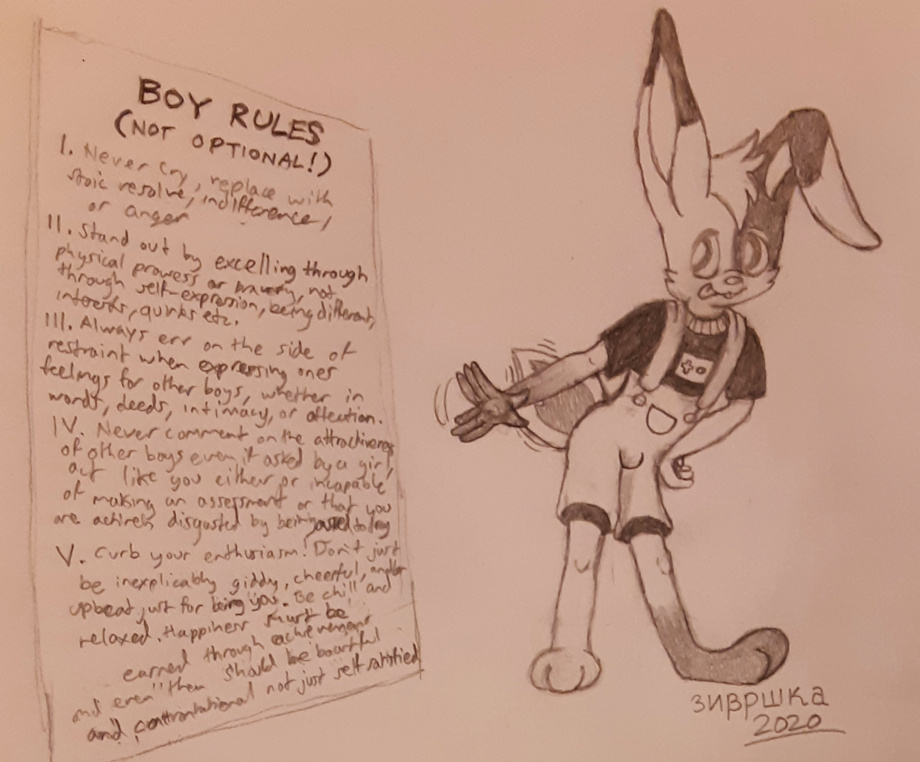 BOY RULES
(NOT OPTIONAL!)
I. Never Cry, replace with
stoic resolve, indifference,
or anger
II. Stand out by excelling through
physical prowess or bravery, not
through self-expression, being different,
interests, quirks etc.
III. Always err on the side of
restraint when expressing ones
feelings for other boys, whether in
words, deeds, intimacy, or affection.
IV. Never comment on the attractiveness
of other boys even if asked by a girl,
act like you either or incapable
of making an assessment or that you
are actively disgusted by being asked to
V. Curb your enthusiasm! Don't just
be inexplicably giddy, cheerful, and/or
upbeat just for being you. Be chill and
relaxed. Happiness must be
earned through achievement
and even then should be boastful
and confrontational not just self satisfied
зивршка
2020